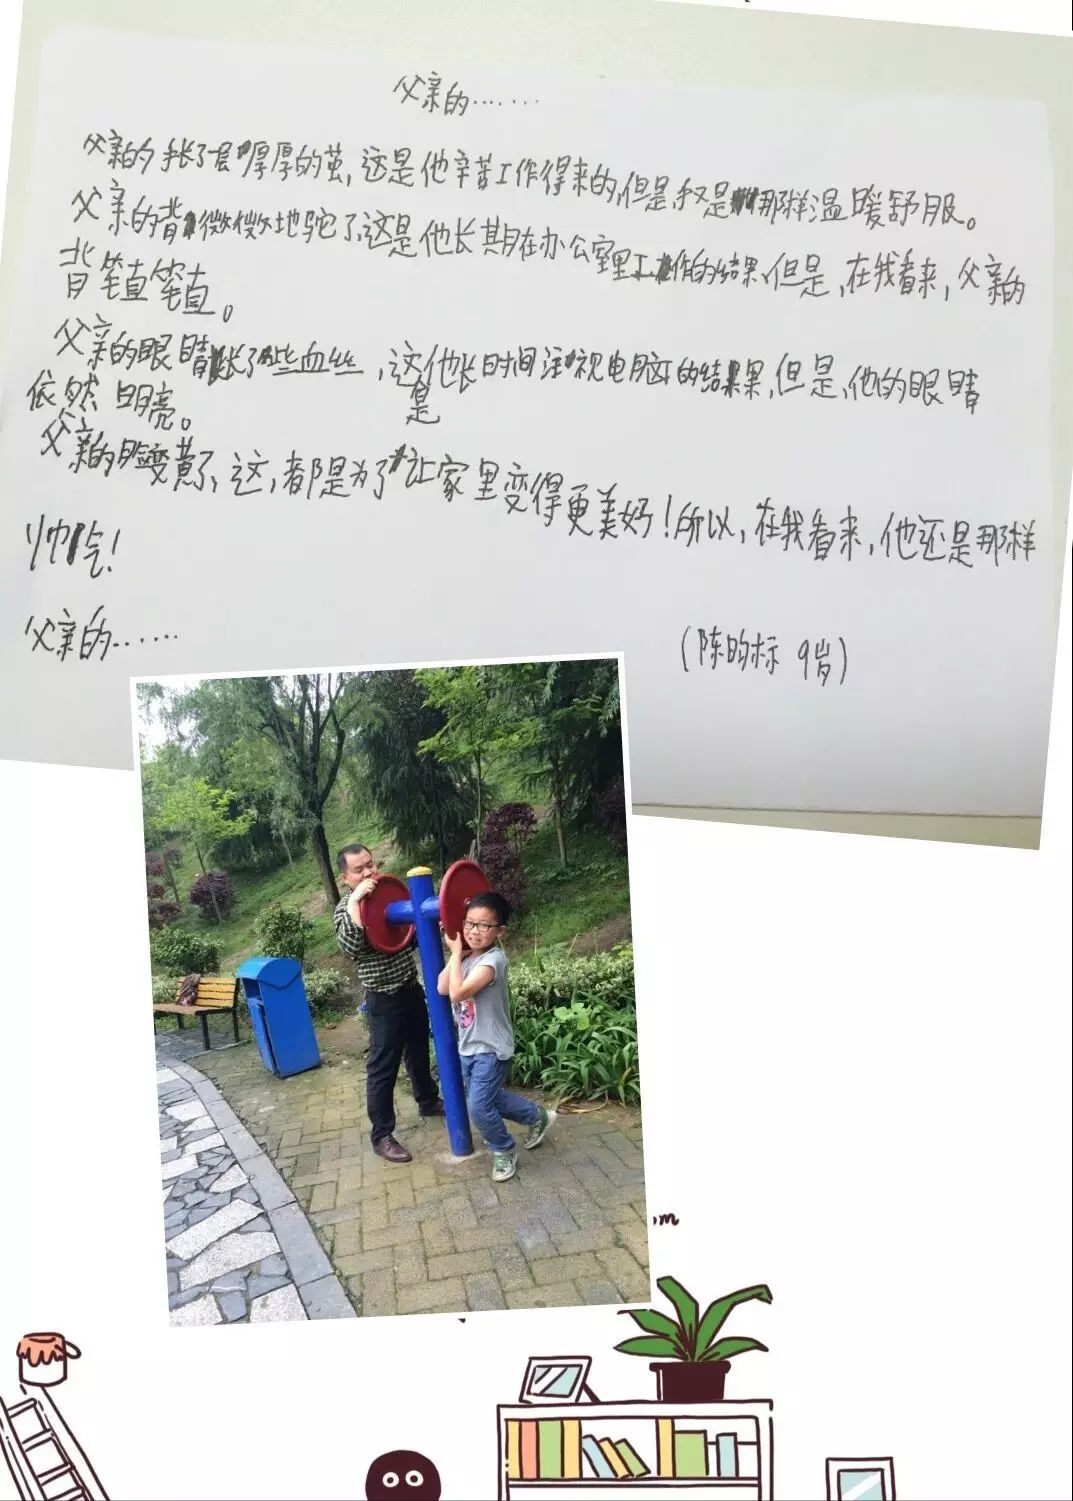 父亲的……
父亲的手长了层厚厚的茧,这是他辛苦工作得来的,但是,我又是那样温暖舒服。
父亲的背微微地驼了,这是他长期在办公室里工作的结果,但是,在我看来,父亲的
背笔直笔直。
父亲的眼睛长了些血丝,这是他长时间注视电脑的结果,但是,他的眼睛
依然明亮。
父亲的脸变黄了,这,都是为了让家里变得更美好!所以,在我看来,他还是那样
帅气!
父亲的……
(陈昀标 9岁)